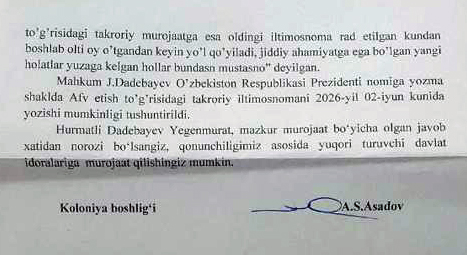 to'g'risidagi takroriy murojaatga esa oldingi iltimosnoma rad etilgan kundan
boshlab olti oy o'tgandan keyin yo'l qo'yiladi, jiddiy ahamiyatga ega bo'lgan yangi
holatlar yuzaga kelgan hollar bundasn mustasno" deyilgan.
Mahkum J.Dadebayev O'zbekiston Respublikasi Prezidenti nomiga yozma
shaklda Afv etish to'g'risidagi takroriy iltimosnomani 2026-yil 02-iyun kunida
yozishi mumkinligi tushuntirildi.
Hurmatli Dadebayev Yegenmurat, mazkur murojaat bo'yicha olgan javob
xatidan norozi bo'lsangiz, qonunchiligimiz asosida yuqori turuvchi davlat
idoralariga murojaat qilishingiz mumkin.
Koloniya boshlig'i A.S.Asadov